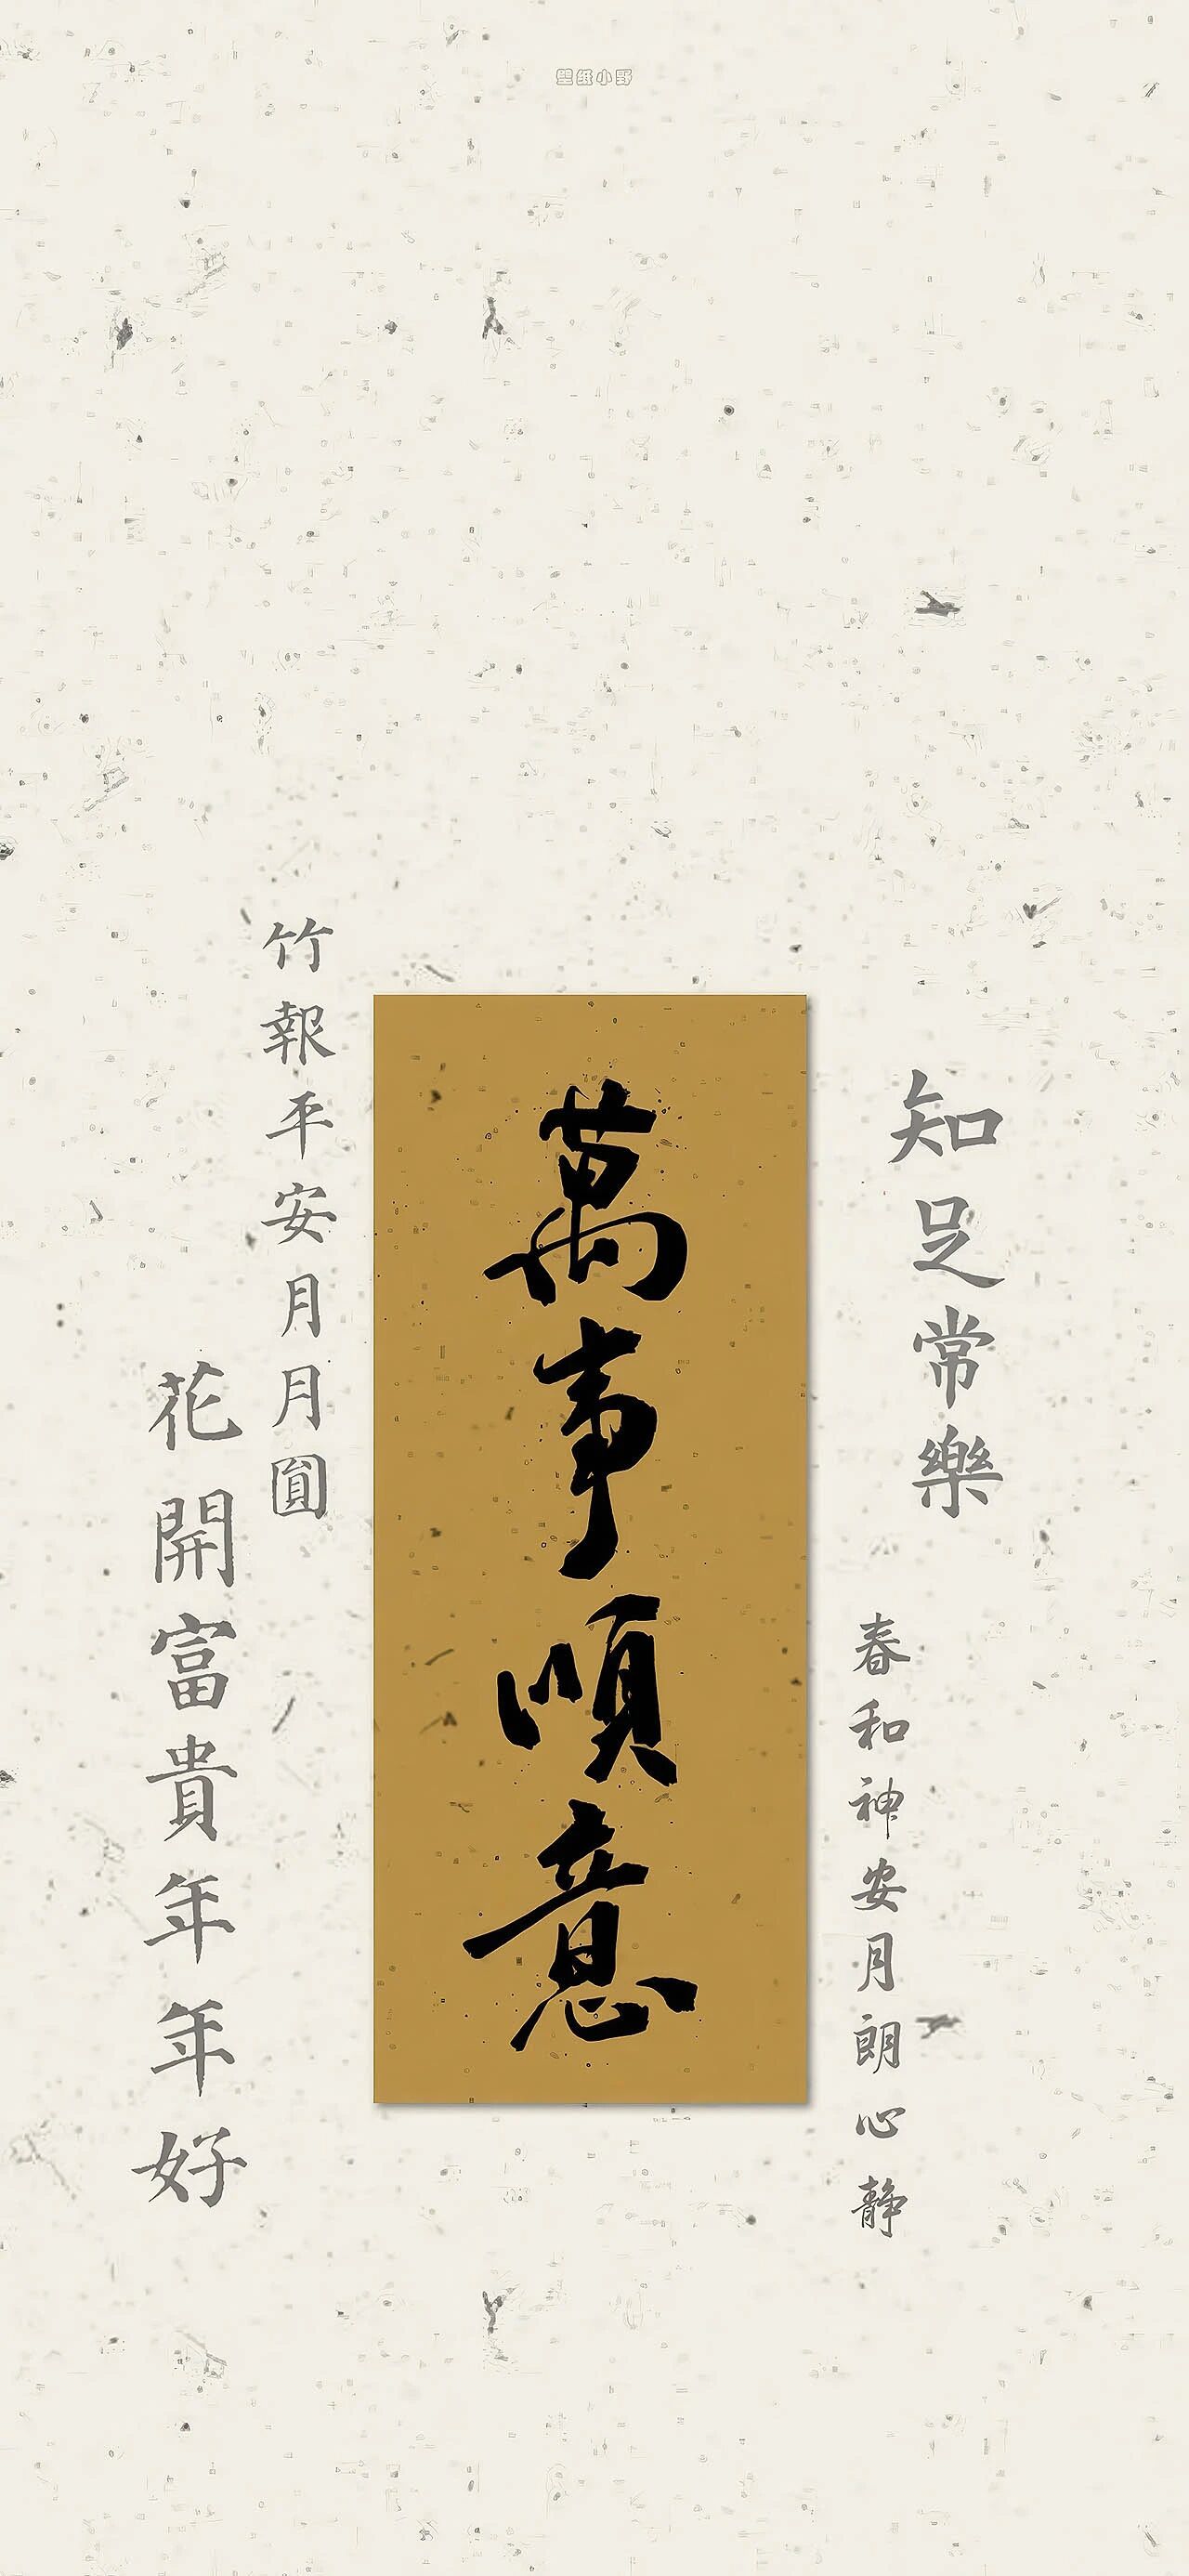 壁纸小野
知足常樂
春和神安月朗心静
萬事順意
竹報平安月月圓
花開富貴年年好